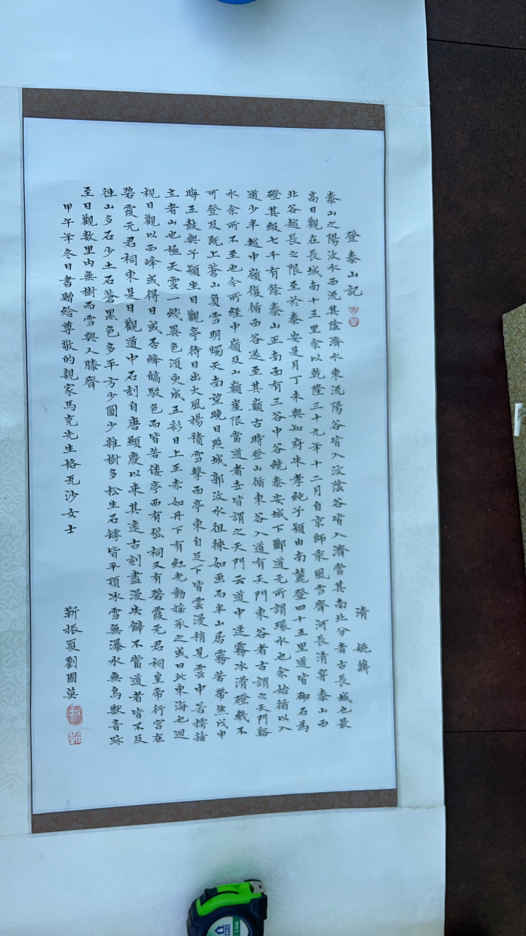 登泰山記
清 姚鼐
泰山之陽汶水西流其陰濟水東流陽谷皆入汶陰谷皆入濟當其南北分者古長城也最
高日觀在長城南十五里余以乾隆三十九年十二月自京師乘風雪齊河長清穿泰山西
北谷越長之限至於泰安是月丁未與知府朱孝純子潁由南麓登四十五里道皆砌石為
磴其級七千有餘泰山正南面有三谷中谷繞泰安城下酈道元所謂環水也余始循以入
道少半越中嶺復循西谷遂至其巔古時登山循東谷入道有天門東谷者古謂之天門谿
水余所不至也今所經中嶺及山巔崖限當道者世皆謂之天門云道中迷霧冰滑磴幾不
可登及既上蒼山負雪明燭天南望晚日照城郭汶水徂徠如畫而半山居霧若帶然戊申
晦五鼓與子潁坐日觀亭待日出大風揚積雪擊面亭東自足下皆雲漫稍見雲中若摴蒱
立者山也極天雲一線異色須臾成五彩日上正赤如丹下有紅光動搖承之或曰此東海也迴
視日觀以西峰或得日或否絳皜駁色而皆若僂亭西有岱祠又有碧霞元君祠皇帝行宮在
碧霞元君祠東是日觀道中石刻自唐顯慶以來其遠古刻盡漫失僻不當道者皆不及
往山多石少土石蒼黑色多平方少圜少雜樹多松生石罅皆平頂冰雪無瀑水無鳥獸音跡
至日觀數里內無樹而雪與人膝齊
甲午年冬日書贈給尊敬的親家馬克先生格瓦沙女士
靳振夏劉國英